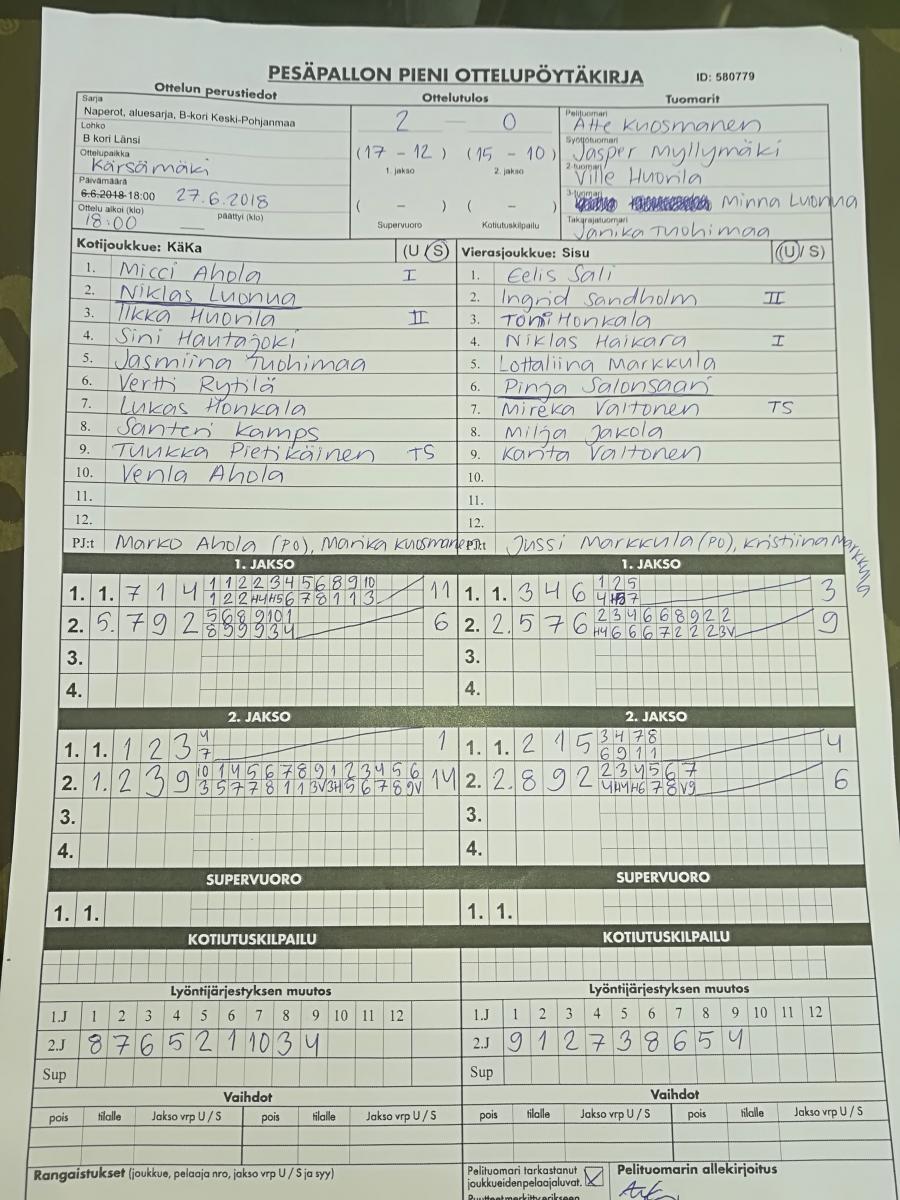 PESÄPALLON PIENI OTTELUPÖYTÄKIRJA ID: 580779
Ottelun perustiedot Ottelutulos Tuomarit
Sarja
Naperot, aluesarja, B-kori Keski-Pohjanmaa
Lohko
B kori Länsi
Ottelupaikka
Kärsämäki
Päivämäärä
6.6.2018 18:00 27.6.2018
Ottelu alkoi (klo) päättyi (klo)
18:00
2 — 0
(17 - 12) (15 - 10)
1. jakso 2. jakso
( - ) ( - )
Supervuoro Kotiutuskilpailu
Pelituomari
Atte Kuosmanen
Syöttötuomari
Jasper Myllymäki
2-tuomari
Ville Huorila
3-tuomari
Minna Luonua
Takarajatuomari
Janika Tuohimaa
Kotijoukkue: KäKa (U / S) Vierasjoukkue: Sisu (U / S)
1. Micci Ahola I 1. Eelis Sali
2. Niklas Luonua 2. Ingrid Sandholm II
3. Iikka Huorila II 3. Toni Honkala
4. Sini Hautajoki 4. Niklas Haikara I
5. Jasmiina Tuohimaa 5. Lottaliina Markkula
6. Vertti Rytilä 6. Pinja Salonsaari
7. Lukas Honkala 7. Mireka Valtonen TS
8. Santeri Kamps 8. Milja Jakola
9. Tuukka Pietikäinen TS 9. Karita Valtonen
10. Venla Ahola 10.
11. 11.
12. 12.
PJ:t Marko Ahola (PO), Marika Kuosmanen PJ:t Jussi Markkula (PO), Kristiina Markkula
1. JAKSO 1. JAKSO
1. 1. 7 1 4 1 1 2 2 3 4 5 6 8 9 10 11 1. 1. 3 4 6 1 2 5 3
1 2 2 H4 H5 6 7 8 1 1 3
2. 5. 7 9 2 5 6 8 9 10 1 6 2. 2. 5 7 6 2 3 4 6 6 8 9 2 2 9
8 9 9 9 3 4 H4 6 6 6 7 2 2 2 3V
3. 3.
4. 4.
2. JAKSO 2. JAKSO
1. 1. 1 2 3 4 1 1. 1. 2 1 5 3 4 7 8 4
7 6 9 1 1
2. 1. 2 3 9 10 1 4 5 6 7 8 9 1 2 3 4 5 6 14 2. 2. 8 9 2 2 3 4 5 6 7 6
3 5 7 7 8 1 1 3V 3H 5 6 7 8 9V 4 H4 H6 7 8 V9
3. 3.
4. 4.
SUPERVUORO SUPERVUORO
1. 1. 1. 1.
KOTIUTUSKILPAILU KOTIUTUSKILPAILU
Lyöntijärjestyksen muutos Lyöntijärjestyksen muutos
1.J 1 2 3 4 5 6 7 8 9 10 11 12 1.J 1 2 3 4 5 6 7 8 9 10 11 12
2.J 8 7 6 5 2 1 10 3 4 2.J 9 1 2 7 3 8 6 5 4
Sup Sup
Vaihdot Vaihdot
pois tilalle Jakso vrp U / S pois tilalle Jakso vrp U / S pois tilalle Jakso vrp U / S pois tilalle Jakso vrp U / S
Rangaistukset (joukkue, pelaaja nro, jakso vrp U / S ja syy) Pelituomari tarkastanut Pelituomarin allekirjoitus
joukkueidenpelaajaluvat.